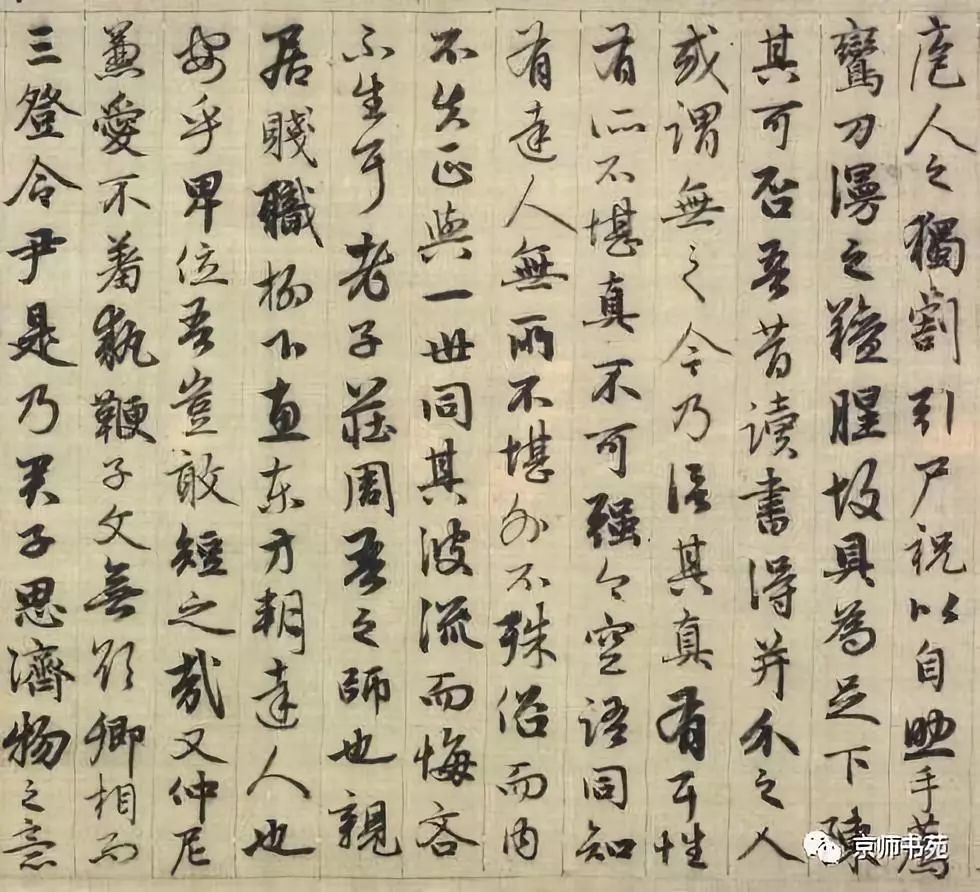 庖人之獨割引尸祝以自助手薦
鸞刀漫之羶腥故具為足下陳
其可否吾昔讀書得并介之人
或謂無之今乃信其真有耳性
有所不堪真不可强今空語同知
有達人無所不堪外不殊俗而內
不失正與一世同其波流而悔吝
不生耳老子莊周吾之師也親
居賤職柳下惠東方朔達人也
安乎卑位吾豈敢短之哉又仲尼
兼愛不羞執鞭子文無欲卿相而
三登令尹是乃君子思濟物之意
京师书苑